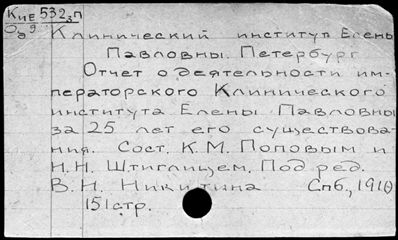 КиЕ 532₃п
Оа 9
Клинический институт Елены
Павловны. Петербург
Отчет о деятельности им-
ператорского Клинического
института Елены Павловны
за 25 лет его существова-
ния. Сост. К.М. Поповым и
Н.Н. Штиглицем. Под ред.
В.Н. Никитина Спб., 1910
151 стр.